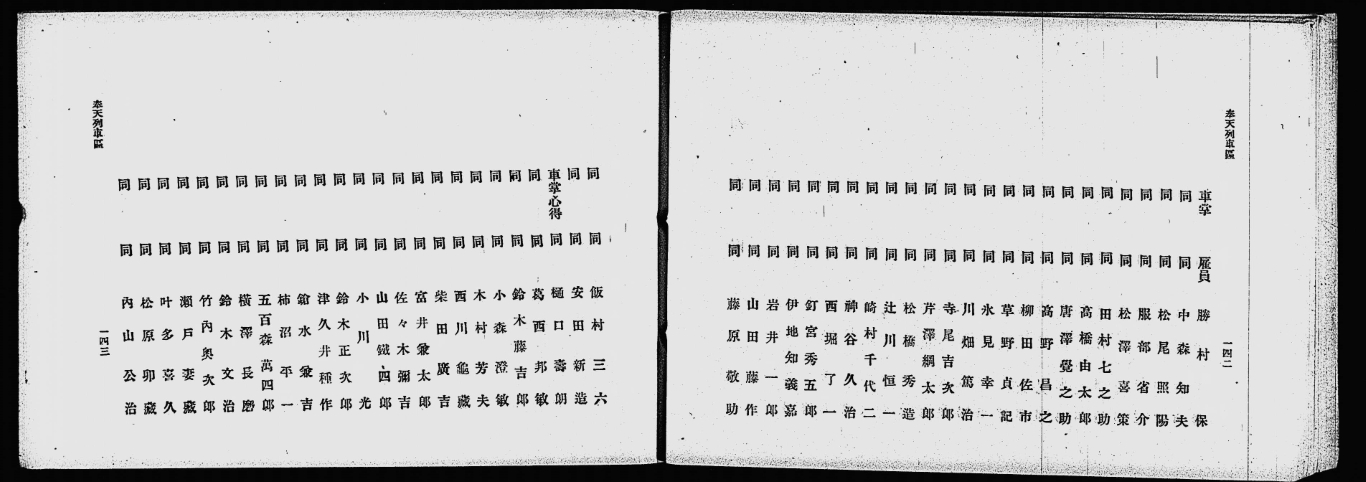 奉天列車區
一四二
車掌 雇員 勝村保
同 同 中森知夫
同 同 松尾照陽
同 同 服部省介
同 同 松澤喜策
同 同 田村七之助
同 同 高橋由太郎
同 同 唐澤覺之助
同 同 高野昌之
同 同 柳田佐市
同 同 草野貞記
同 同 氷見幸一
同 同 川畑篤治
同 同 寺尾吉次郎
同 同 芹澤綱太郎
同 同 松橋秀造
同 同 辻川恒一
同 同 崎村千代二
同 同 神谷久治
同 同 西堀了一
同 同 釘宮秀五郎
同 同 伊地知義嘉
同 同 岩井一郎
同 同 山田藤作
同 同 藤原敬助
同 同 飯村三六
同 同 安田新造
車掌心得 同 樋口壽朗
同 同 葛西邦敏
同 同 鈴木藤吉郎
同 同 小森澄敏
同 同 木村芳夫
同 同 西川龜藏
同 同 柴田廣吉
同 同 富井兼太郎
同 同 佐々木彌吉
同 同 山田鐵四郎
同 同 小川光
同 同 鈴木正次郎
同 同 津久井種作
同 同 鎗水兼吉
同 同 柿沼平一
同 同 五百森萬四郎
同 同 横澤長磨
同 同 鈴木文治
同 同 竹內奥次郎
同 同 瀬戸妻藏
同 同 叶多喜久
同 同 松原卯藏
同 同 內山公治
奉天列車區
一四三